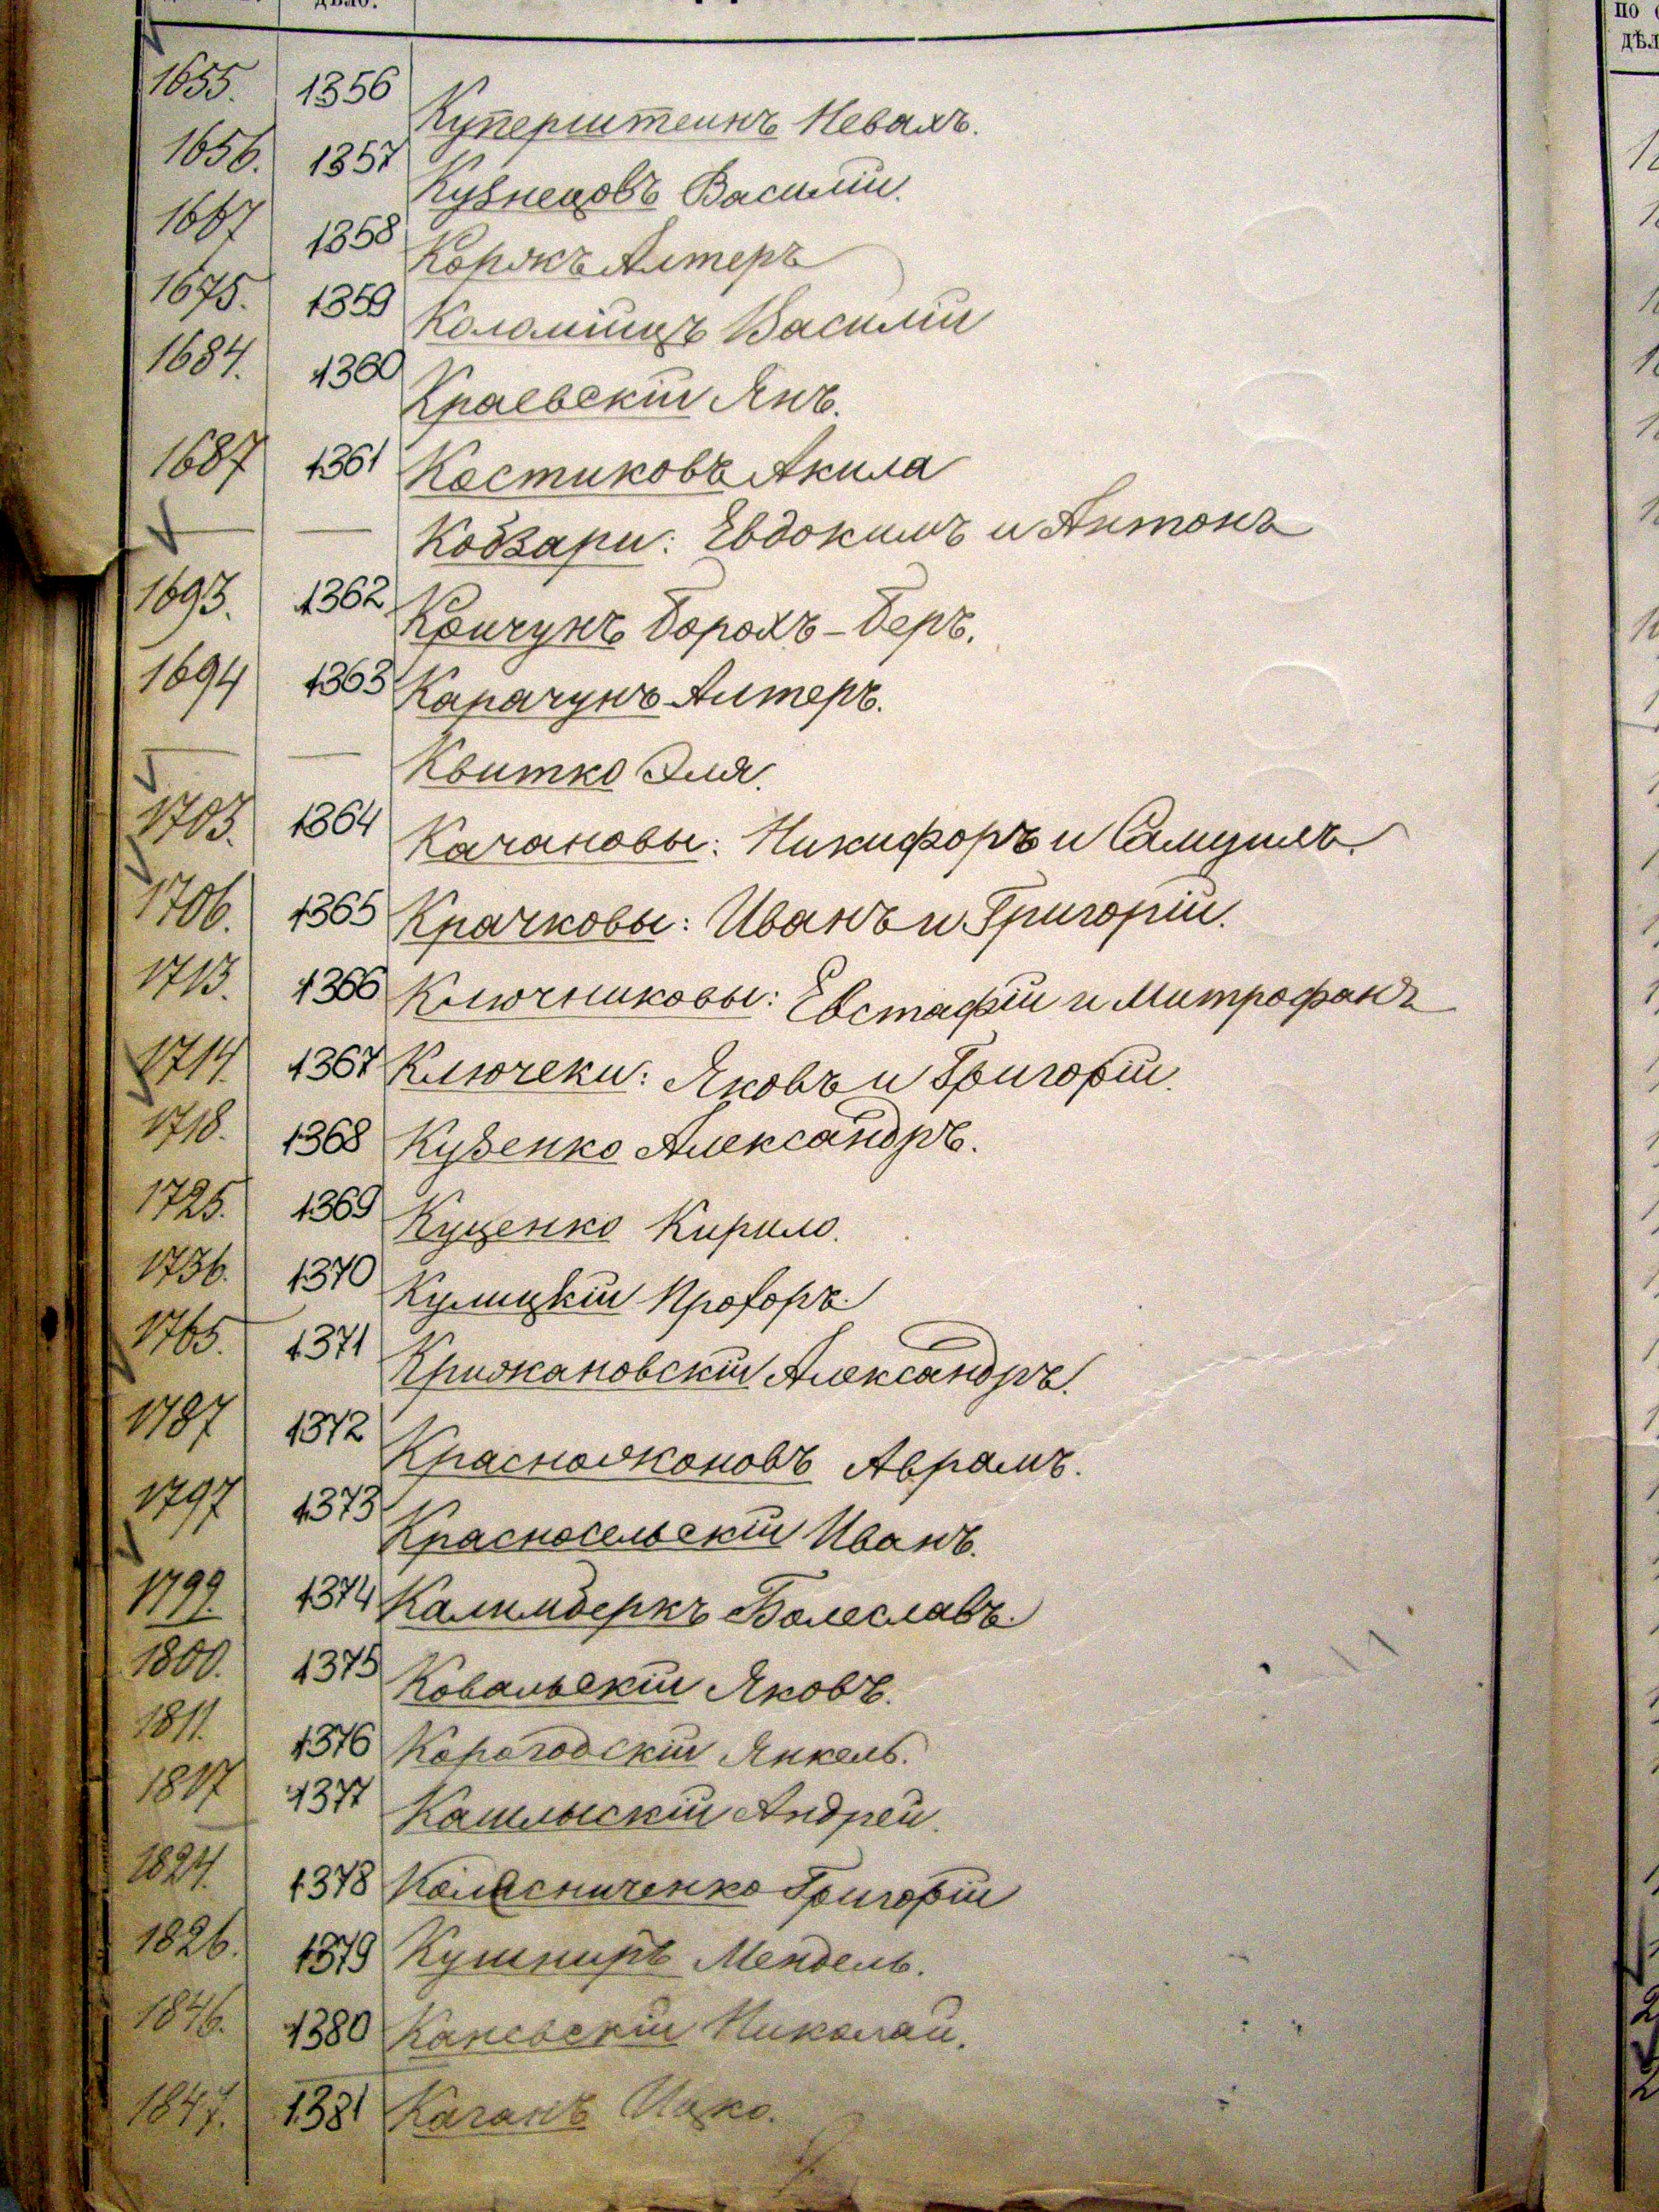 дѣло.
по
дѣл
1655. 1356 Куперштеинъ Невахъ.
1656. 1357 Кузнецовъ Василій.
1667 1358 Корякъ Алтеръ
1675. 1359 Коломійцъ Василій
1684. 1360 Краевскій Янъ.
1687 1361 Костиковъ Акила
— — Кобзари: Евдокимъ и Антонъ
1693. 1362 Коичунъ Борохъ-Беръ.
1694 1363 Карачунъ Алтеръ.
— — Квитко Эля.
1703. 1364 Качановы: Никифоръ и Самуилъ.
1706. 1365 Крачковы: Иванъ и Григорій.
1713. 1366 Ключниковы: Евстафій и Митрофанъ
1714. 1367 Ключеки: Яковъ и Григорій.
1718. 1368 Кузенко Александръ.
1725. 1369 Куценко Кирило.
1736. 1370 Кулицкій Прохоръ.
1765. 1371 Крижановскій Александръ.
1787 1372 Красножоновъ Аврамъ.
1797 1373 Красносельскій Иванъ.
1799. 1374 Калимберкъ Болеславъ.
1800. 1375 Ковальскій Яковъ.
1811. 1376 Корогодскій Янкель.
1817 1377 Кашлыскій Андрей.
1824. 1378 Колесниченко Григорій
1826. 1379 Кушниръ Мендель.
1846. 1380 Каневскій Николай.
1847. 1381 Каганъ Ицко.